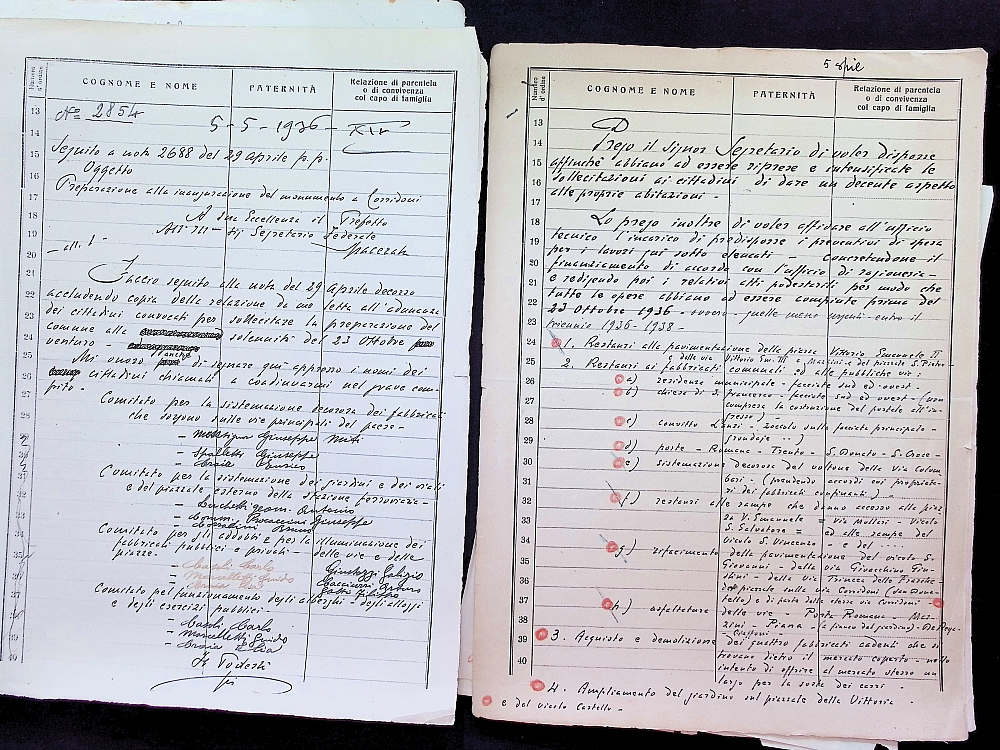 Numero d'ordine
COGNOME E NOME
PATERNITÀ
Relazione di parentela
o di convivenza
col capo di famiglia
13
14
15
16
17
18
19
20
21
22
23
24
25
26
27
28
29
30
31
32
33
34
35
36
37
38
39
40
N° 2854
5-5-1936 - XIV
Seguito a nota 2688 del 29 aprile p.p.
Oggetto
Preparazione alla inaugurazione del monumento a Corridoni
A Sua Eccellenza il Prefetto
Segretario Federale
Macerata
- all. 1 -
Faccio seguito alla nota del 29 aprile decorso
accludendo copia della relazione da me letta all'adunanza
dei cittadini convocati per sollecitare la preparazione del
comune alle solennità del 23 Ottobre
venturo -
Mi onoro di segnare qui appresso i nomi dei
cittadini chiamati a coadiuvarmi nel grave com-
pito -
Comitato per la sistemazione decorosa dei fabbricati
che sorgono sulle vie principali del paese -
- Giuseppe
- Spalletti Giuseppe
- Enrico
Comitato per la sistemazione dei giardini e dei viali
e del piazzale esterno della stazione ferroviaria -
- Luchetti geom. Antonio
- Comm. Procaccini Giuseppe
Comitato per gli addobbi e per la illuminazione dei
fabbricati pubblici e privati - delle vie e delle
piazze.
- Carlo
- Guido
Comitato pel funzionamento degli alberghi - degli alloggi
e degli esercizi pubblici -
- Carlo
- Guido
Il Podestà
5 aprile
Numero d'ordine
COGNOME E NOME
PATERNITÀ
Relazione di parentela
o di convivenza
col capo di famiglia
13
14
15
16
17
18
19
20
21
22
23
24
25
26
27
28
29
30
31
32
33
34
35
36
37
38
39
40
Prego il Signor Segretario di voler disporre
affinché abbiano ad essere riprese e intensificate le
sollecitazioni ai cittadini di dare un decente aspetto
alle proprie abitazioni -
Lo prego inoltre di voler affidare all'ufficio
tecnico l'incarico di predisporre i preventivi di spesa
per i lavori qui sotto elencati - concretandone il
finanziamento di accordo con l'ufficio di ragioneria -
e redigendo poi i relativi atti podestarili per modo che
tutte le opere abbiano ad essere compiute prima del
23 Ottobre 1936 - ovvero - quelle meno urgenti entro il
triennio 1936-1938 -
1. Restauri alla pavimentazione della piazza Vittorio Emanuele II
e delle vie Vittorio Em. III e Mazzini e del piazzale S. Pietro -
2. Restauri ai fabbricati comunali ed alle pubbliche vie:
a) residenza municipale - facciate sud ed ovest -
b) chiesa di S. Francesco - facciate sud ed ovest - (non
compresa la costruzione del portale all'in-
gresso) -
c) convitto Lanzi - zoccolo sulla facciata principale -
(grondaje ..)
d) porte - Romana - Trento - S. Donato - S. Croce -
e) sistemazione decorosa del voltone della via Colom-
bari - (prendendo accordi coi proprieta-
ri dei fabbricati confinanti) -
f) restauri alle rampe che danno accesso alla piaz-
za V. Emanuele = via Mollari - vicolo
S. Salvatore = ed alle rampe del
vicolo S. Vincenzo - e del .....
g) rifacimento della pavimentazione del vicolo S.
Giovanni - della via Giovacchino
- della via Trincea delle Frasche
del piazzale sulla via Corridoni (San Dona-
to) e di parte della stessa via Corridoni -
h) asfaltatura delle vie - Porta Romana - Maz-
zini - Piana - (a fianco del giardino) -
3. Acquisto e demolizione dei quattro fabbricati cadenti che si
trovano dietro il mercato coperto - nello
intento di offrire al mercato stesso un
largo per la sosta dei carri -
4. Ampliamento del giardino sul piazzale della Vittoria -
e del vicolo Castello -